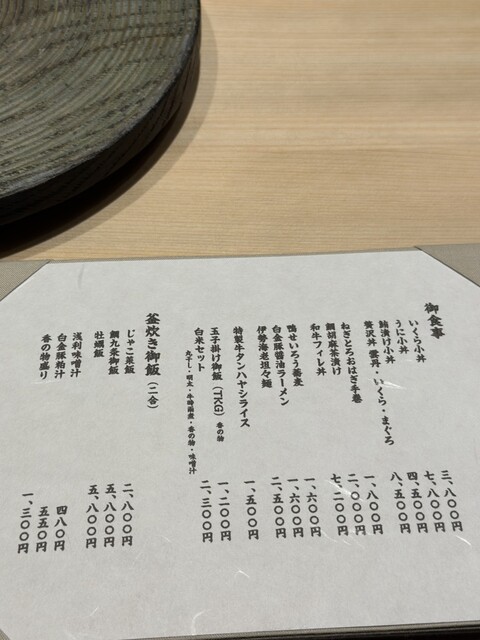 御食事
いくら小丼 三、八〇〇円
うに小丼 七、八〇〇円
鮪漬け小丼 四、五〇〇円
贅沢丼 雲丹・いくら・まぐろ 八、五〇〇円
ねぎとろおはぎ手巻 一、八〇〇円
鯛胡麻茶漬け 二、〇〇〇円
和牛フィレ丼 七、二〇〇円
鴨せいろう蕎麦 一、六〇〇円
白金豚醤油ラーメン 一、六〇〇円
伊勢海老坦々麺 二、五〇〇円
特製牛タンハヤシライス 一、五〇〇円
玉子掛け御飯(TKG) 香の物 一、二〇〇円
白米セット 二、三〇〇円
丸干し・明太・牛時雨煮・香の物・味噌汁
釜炊き御飯(二合)
じゃこ菜飯 二、八〇〇円
鯛九条御飯 五、八〇〇円
牡蠣飯 五、八〇〇円
浅利味噌汁 四八〇円
白金豚粕汁 五五〇円
香の物盛り 一、三〇〇円